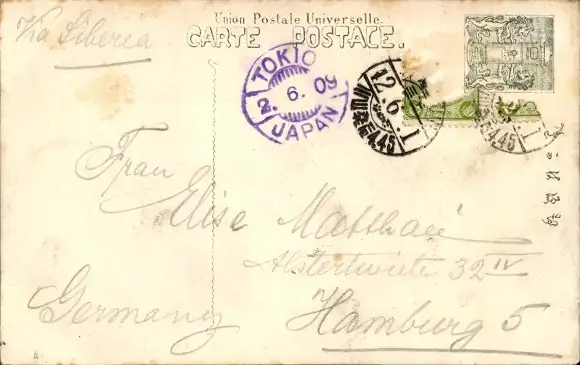 Union Postale Universelle.
CARTE POSTALE.
Via Siberia
TOKIO
2. 6. 09
JAPAN
12.6.1
4.45
Frau
Elise Matthaei
Alstertwiete 32 IV
Germany Hamburg 5